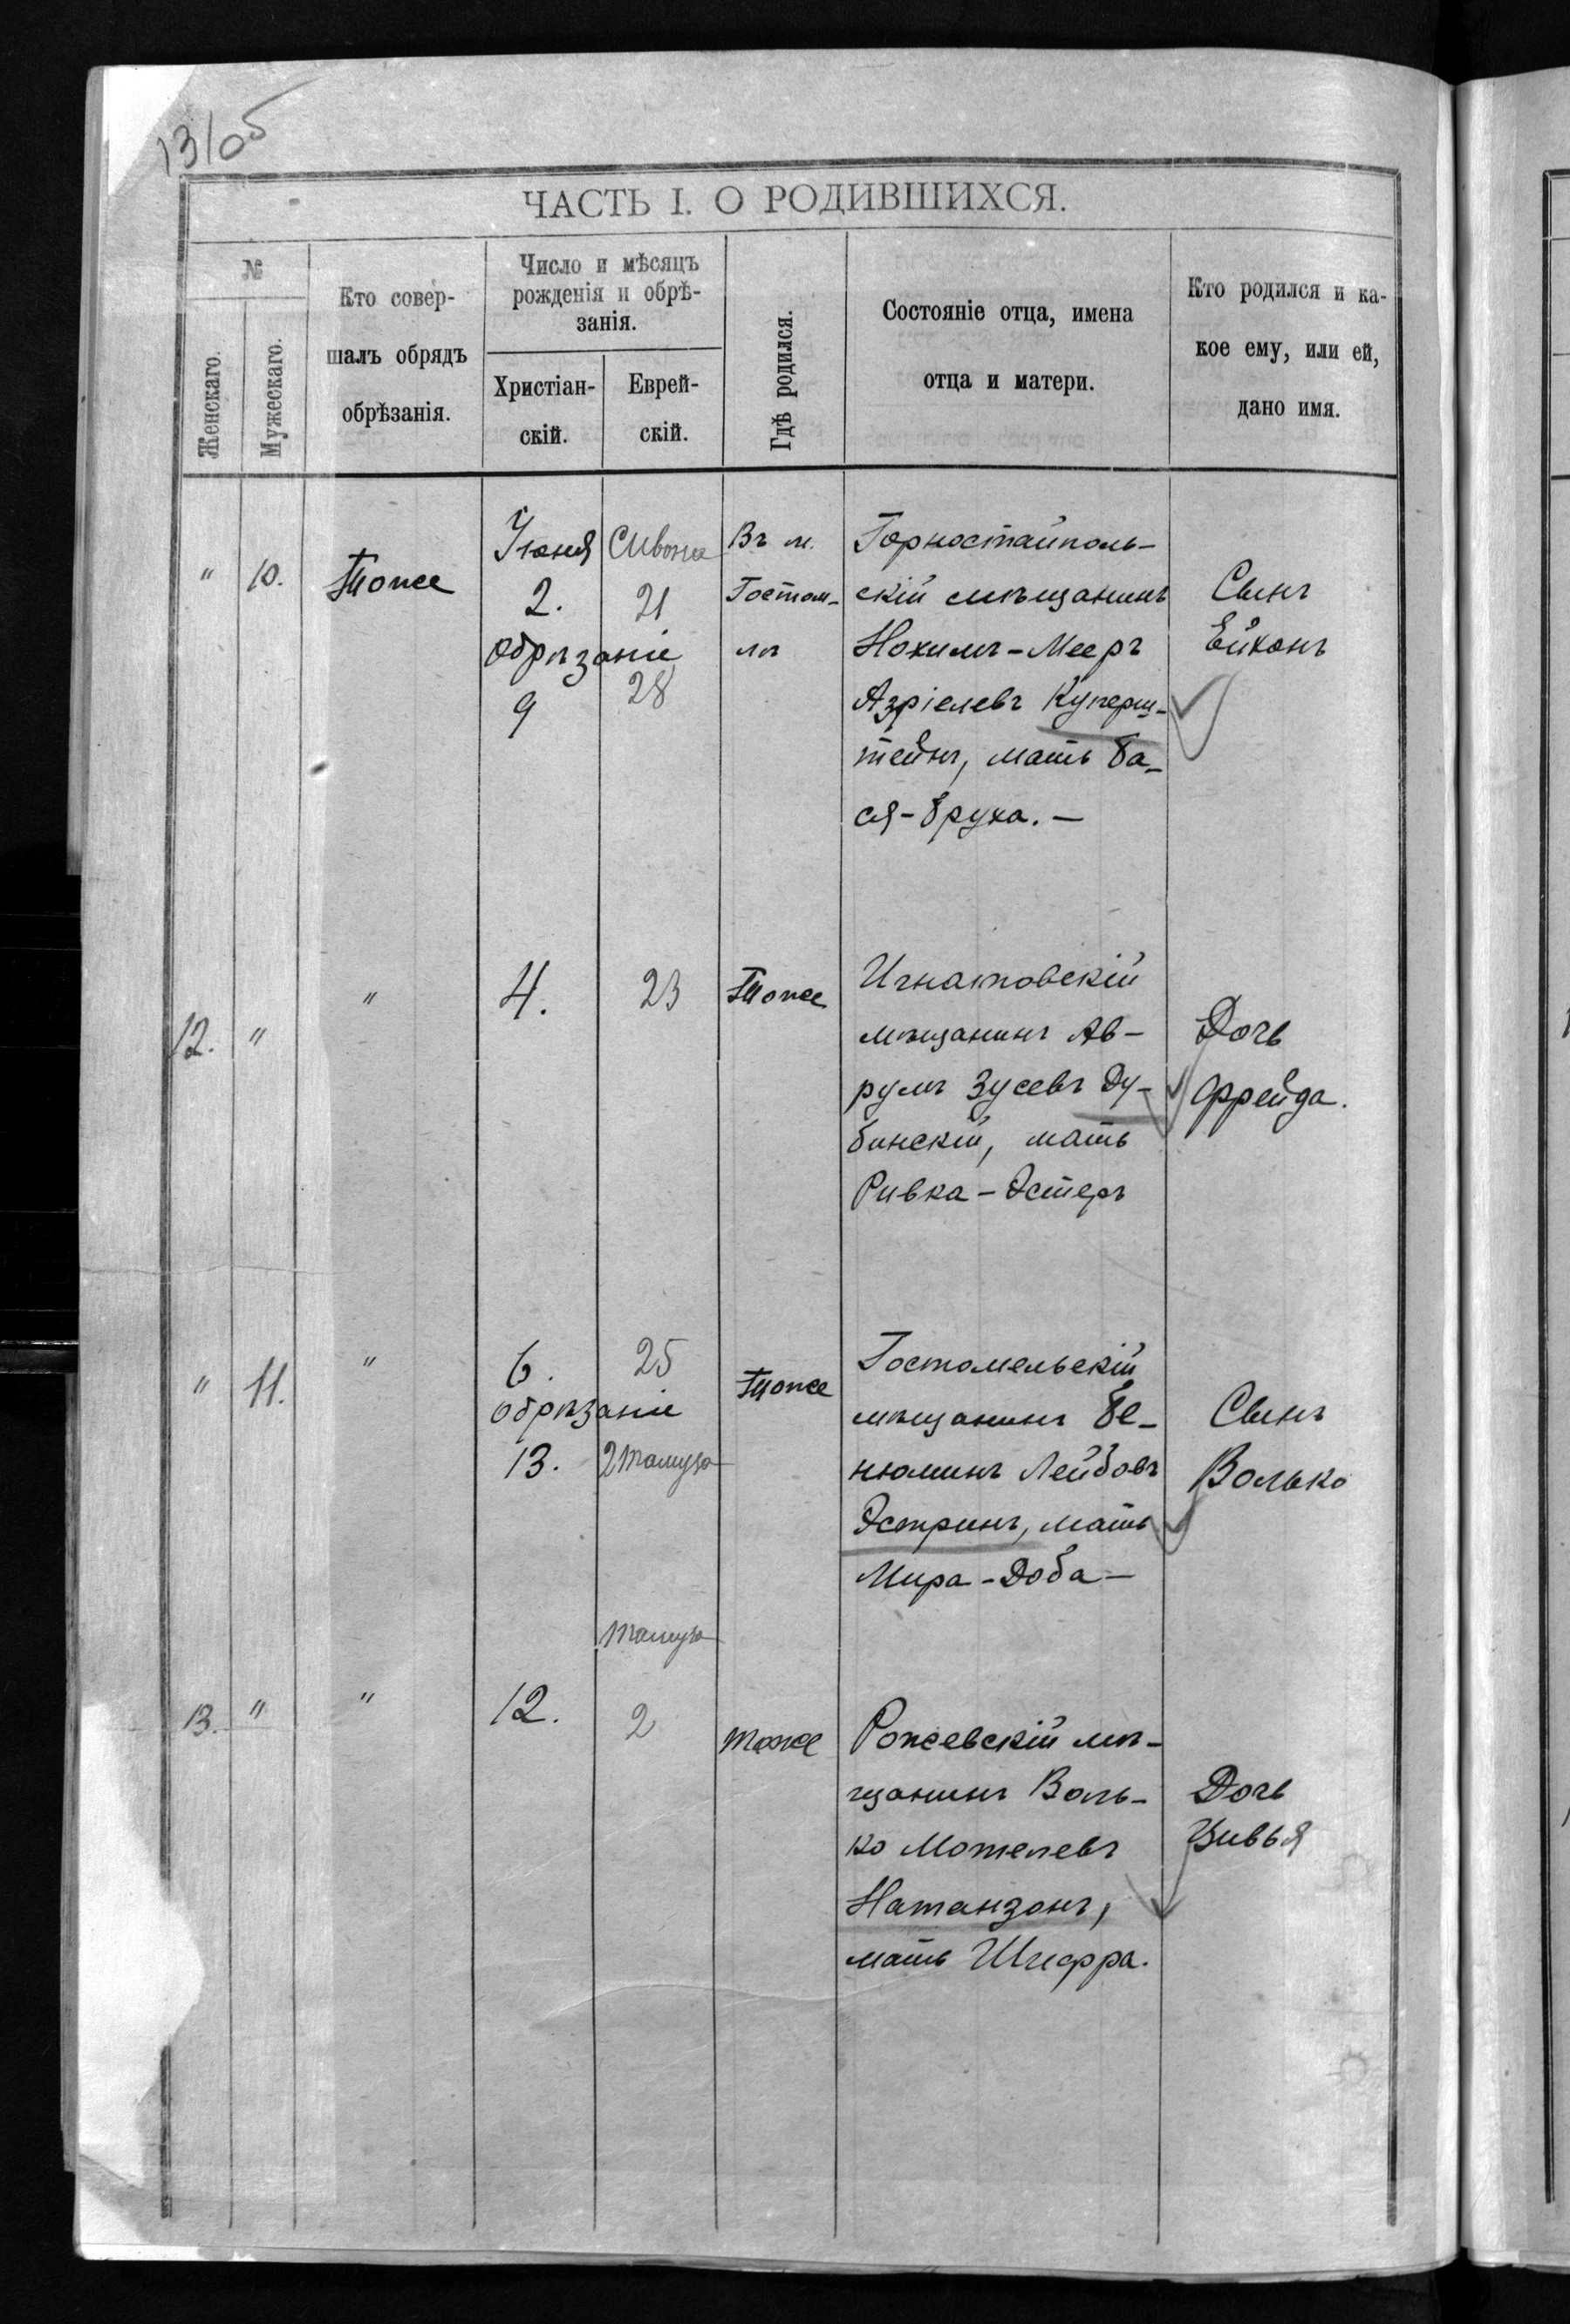 13/05
ЧАСТЬ I. О РОДИВШИХСЯ.
№
Женскаго.
Мужескаго.
Кто совер-
шалъ обрядъ
обрѣзанія.
Число и мѣсяцъ
рожденія и обрѣ-
занія.
Христіан-
скій.
Еврей-
скій.
Гдѣ родился.
Состояніе отца, имена
отца и матери.
Кто родился и ка-
кое ему, или ей,
дано имя.
" 10. Тоже
Іюня Сивона
2. 21
Обрѣзаніе
9 28
Въ м.
Гостом-
лѣ
Горностайполь-
скій мѣщанинъ
Нохимъ-Мееръ
Азріелевъ Куперш-
тейнъ, мать Ба-
ся-Бруха. —
Сынъ
12. " "
4. 23 Тоже
Игнатовскій
мѣщанинъ Ав-
румъ Зусевъ Ду-
бинскій, мать
Ривка-Эстеръ
Дочь
Фрейда.
" 11. "
6. 25
обрѣзаніе
13. 2 Тамуза
Тоже
Гостомельскій
мѣщанинъ Бе-
нюминъ Лейбовъ
Эстринъ, мать
Мира-Доба —
Сынъ
Волько
Тамуза
13. " "
12. 2 тоже
Рожевскій мѣ-
щанинъ Воль-
ко Мотелевъ
Натанзонъ,
мать Шифра.
Дочь
Цивья